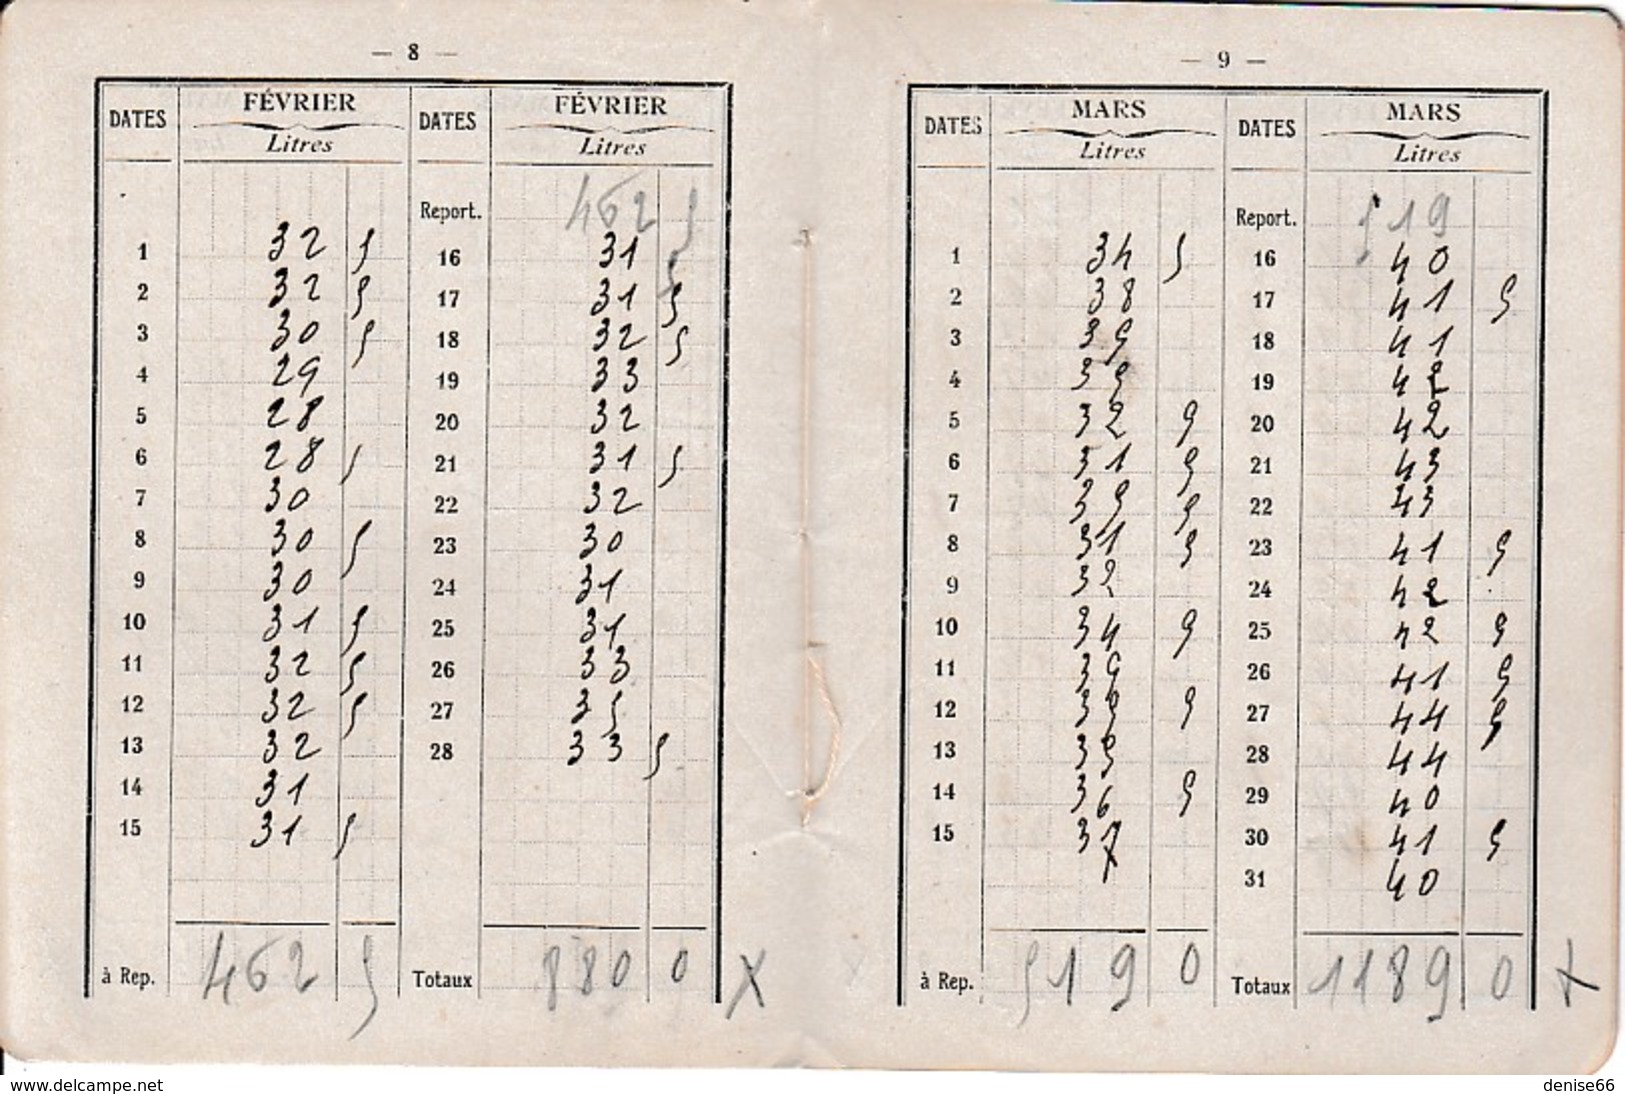 — 8 —
DATES FÉVRIER DATES FÉVRIER
Litres Litres
Report. 462 5
1 32 5 16 31 5
2 32 5 17 31 5
3 30 5 18 32 5
4 29 19 33
5 28 20 32
6 28 5 21 31 5
7 30 22 32
8 30 5 23 30
9 30 24 31
10 31 5 25 31
11 32 5 26 33
12 32 5 27 35
13 32 28 33 5
14 31
15 31 5
à Rep. 462 5 Totaux 880 0 X
— 9 —
DATES MARS DATES MARS
Litres Litres
Report. 519
1 34 5 16 40
2 38 17 41 5
3 35 18 41
4 35 19 42
5 32 5 20 42
6 31 5 21 43
7 35 5 22 43
8 31 5 23 41 5
9 32 24 42
10 34 5 25 42 5
11 35 26 41 5
12 35 5 27 44 5
13 35 28 44
14 36 5 29 40
15 37 30 41 5
31 40
à Rep. 519 0 Totaux 1189 0 X
www.delcampe.net
denise66